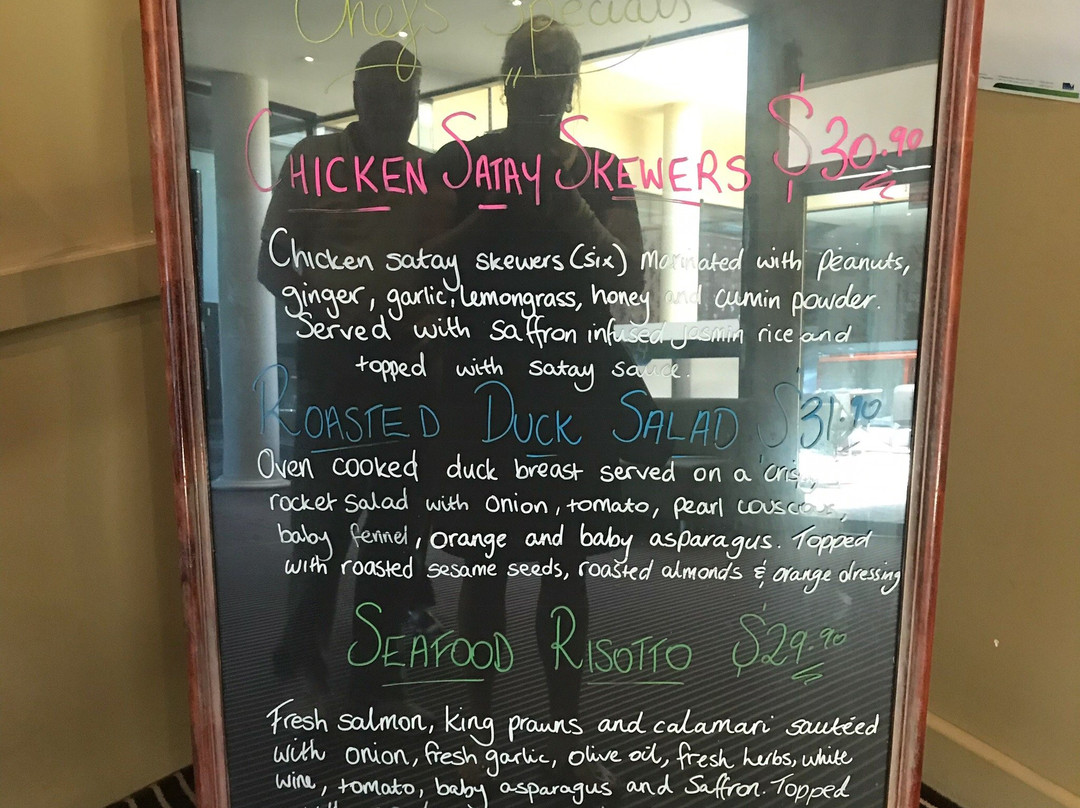 Chef's Specials
CHICKEN SATAY SKEWERS $30.90
Chicken satay skewers (six) marinated with peanuts,
ginger, garlic, lemongrass, honey and cumin powder.
Served with saffron infused jasmin rice and
topped with satay sauce.
ROASTED DUCK SALAD $31.90
Oven cooked duck breast served on a crispy
rocket salad with onion, tomato, pearl couscous,
baby fennel, orange and baby asparagus. Topped
with roasted sesame seeds, roasted almonds & orange dressing
SEAFOOD RISOTTO $29.90
Fresh salmon, king prawns and calamari sautéed
with onion, fresh garlic, olive oil, fresh herbs, white
wine, tomato, baby asparagus and Saffron. Topped